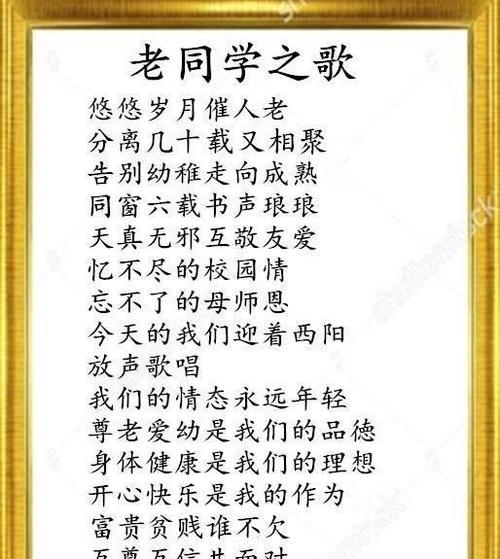 老同学之歌
悠悠岁月催人老
分离几十载又相聚
告别幼稚走向成熟
同窗六载书声琅琅
天真无邪互敬友爱
忆不尽的校园情
忘不了的母师恩
今天的我们迎着西阳
放声歌唱
我们的情态永远年轻
尊老爱幼是我们的品德
身体健康是我们的理想
开心快乐是我的作为
富贵贫贱谁不欠
互尊互信共面对
shutterstock